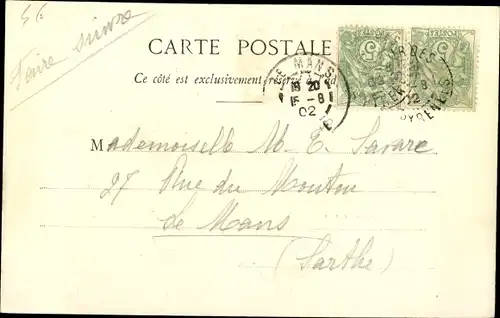 Faire suivre
CARTE POSTALE
Ce côté est exclusivement réservé à
LE MANS
18 20
15 - 8
02
PYRENEES
Mademoiselle M. E. Savare
27 Rue du Mouton
Le Mans
(Sarthe)